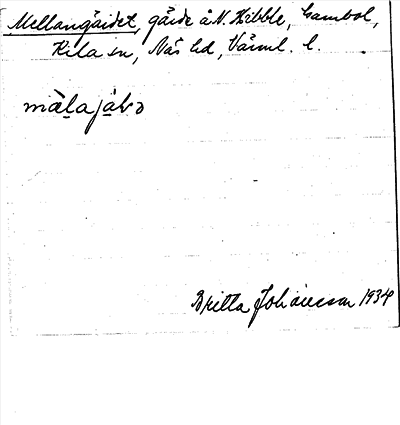 Mellangärdet, gärde å N. Kibble, Gambol,
Kila sn, Näs hd, Värml. l.
mäḷajäḷɔ
Britta Johansson 1934